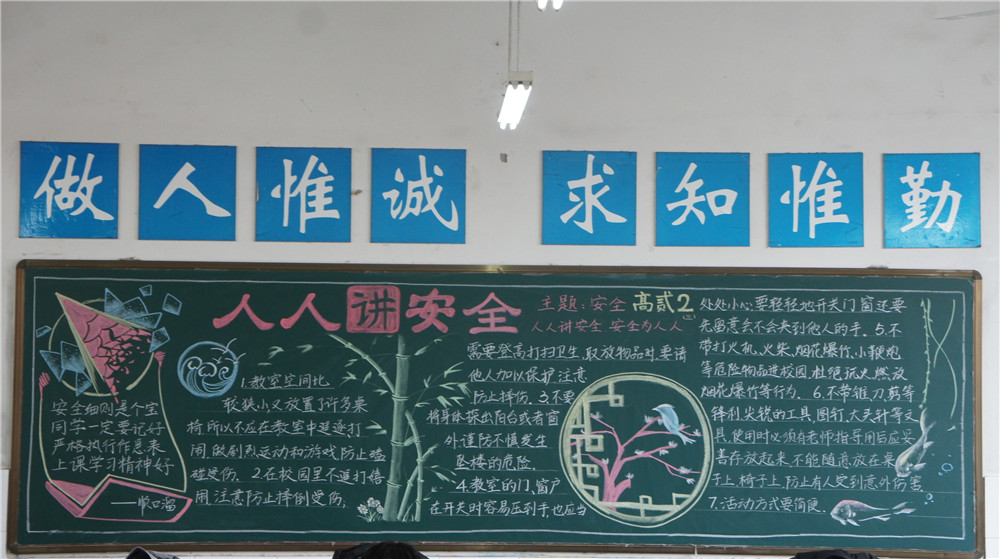 做人惟诚 求知惟勤
人人讲安全
主题:安全 高贰2
人人讲安全 安全为人人
安全细则是个宝
同学一定要记好
严格执行作息来
上课学习精神好
——顺口溜
1.教室空间比
较狭小又放置了许多桌
椅所以不应在教室中追逐打
闹,做剧烈运动和游戏防止磕
碰受伤。2.在校园里不追打借
闹.注意防止摔倒受伤,
需要登高打扫卫生,取放物品时,要请
他人加以保护注意
防止摔伤。3.不要
将身体探出阳台或者窗
外谨防不慎发生
坠楼的危险.
4.教室的门、窗户
在开关时容易压到手,也应当
处处小心,要轻轻地开关门窗还要
先留意会不会夹到他人的手。5.不
带打火机,火柴,烟花爆竹、小鞭炮
等危险物品进校园,杜绝玩火燃放
烟花爆竹等行为。6.不带锥,刀,剪等
锋利尖锐的工具,图钉,大头针等文
具,使用时必须有老师指导用后应妥
善存放起来,不能随意放在桌
子上,椅子上,防止有人受到意外伤害.
7.活动方式要简便.